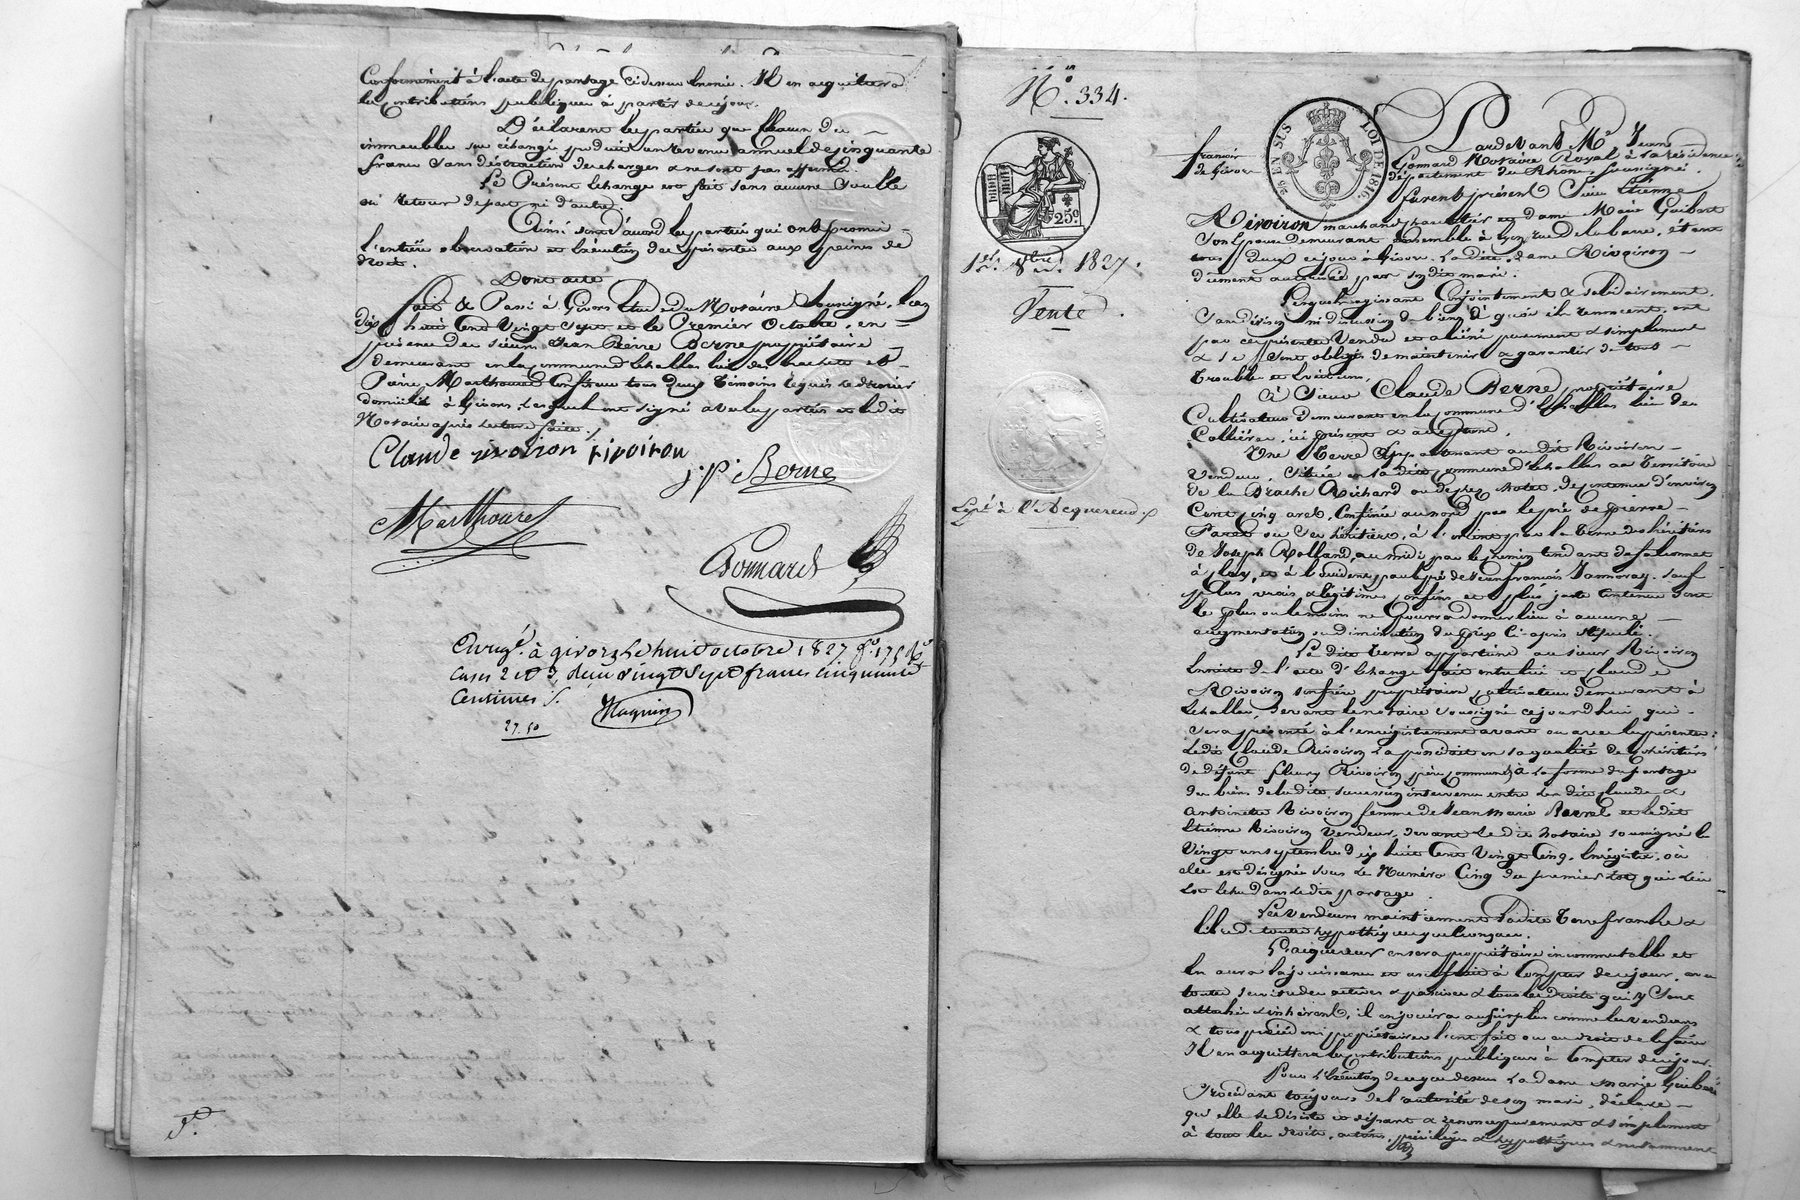 Conformément à l'acte de partage ci dessus énoncé. Il en acquittera
les contributions publiques à partir de ce jour.
Déclarent les parties que chacun des
immeubles sus échangés produit un revenu annuel de cinquante
francs sans distraction des charges & ne sont pas affermés.
Le Présent échange est fait sans aucune Soulte
ni retour de part ni d'autre.
Ainsi sont d'accord les parties qui ont promis
l'entière observation et exécution des présentes aux peines de
droit.
Dont acte
fait & Passé à Givors Etude du Notaire Soussigné, l'an
dix huit Cent Vingt Sept et le Premier Octobre, en
présence des sieurs Jean Pierre Berne propriétaire
demeurant en la commune d'Echallas lieu de et
Pierre Marthoure tous deux témoins requis le dernier
domicilié à Givors, lesquels ont signé avec les parties et ledit
Notaire après lecture faite ./.
Claude rivoiron rivoiron
j. p. Berne
Marthouret
Gonnard
Enreg.é à givors le huit octobre 1827 f.o 175
cases 2 et 3, reçu vingt Sept francs cinquante
Centimes ./.
27.50
N.o 334.
francois
de Givors
25 EN SUS LOI DE 1816.
25c
Pardevant M.e Jean
Gonnard Notaire Royal à la résidence de
département du Rhône, soussigné.
furent présent Sieur Etienne
Rivoiron marchand et dame Marie Guibert
son épouse demeurant ensemble à lyon rue de la barre, étant
tous deux ce jour à Givors. Ladite dame Rivoiron
dûment autorisée par son dit mari.
1er 8bre 1827.
Vente.
Lesquels agissant Conjointement & solidairement,
sans division ni discussion de biens à quoi ils renoncent, ont
par ces présentes Vendu et aliéné purement & simplement
& se sont obligés de maintenir & garantir de tous
troubles et évictions,
à Sieur Claude Berne propriétaire
Cultivateur demeurant en la commune d'Echallas lieu des
Collières, ici présent & acceptant,
Une terre appartenant audit Rivoiron
Vendeur, située en la dite commune d'Echallas au territoire
de la Brache Richard ou de contenue d'environ
Cent cinq ares, Confinée au nord par le pré de pierre
Paret ou ses héritiers, à l'orient par la terre des héritiers
de Joseph Rolland, au midi par le chemin tendant de
à et à l'occident par le pré de Jean françois Jamoray. Sauf
plus vrais & légitimes confins et plus juste contenue dont
le plus ou le moins ne pourra donner lieu à aucune
augmentation ou diminution du prix ci-après stipulé.
Expé à l'Acquereur
La dite terre appartient au sieur Rivoiron
Ensuite de l'acte d'échange fait entre lui et Claude
Rivoiron son frère propriétaire cultivateur demeurant à
Echallas, devant le notaire soussigné ce jourd'hui qui
sera présenté à l'enregistrement avant ou avec les présentes.
Ledit Claude Rivoiron la possédait en sa qualité de cohéritiers
de défunt fleury Rivoiron père commun à la forme du partage
des biens de la dite succession intervenu entre les dits claude &
antoinette Rivoiron femme de Jean Marie et ledit
Etienne Rivoiron Vendeur, devant le dit notaire soussigné le
Vingt un septembre dix huit Cent Vingt Cinq, Enregistré, où
elle est désignée sous le Numéro Cinq du premier lot qui lui
est échu dans le dit partage.
Les Vendeurs maintiennent ladite terre franche &
libre de toutes hypothèques quelconques.
L'acquéreur en sera propriétaire incommutable et
En aura la jouissance et usufruit à Compter de ce jour, avec
toutes servitudes actives & passives & tous les droits qui y sont
attachés & inhérent, il en jouira au surplus comme les vendeurs
& tous précédens propriétaires l'ont fait ou eu droit de le faire
Il en acquittera les contributions publiques à Compter de ce jour.
Pour l'Exécution de ce que dessus la dame marie Guibert
Procédant toujours de l'autorité de son mari, déclare
qu'elle se désiste et départ & renonce purement & simplement
à tous les droits, actions, privilèges & hypothèques & notamment